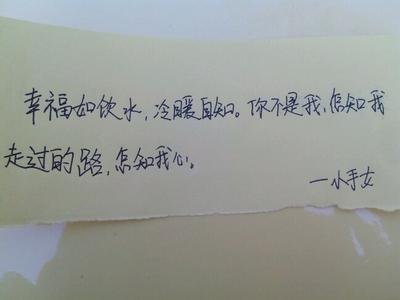 幸福如饮水,冷暖自知。你不是我,怎知我
走过的路,怎知我心。
—小手女